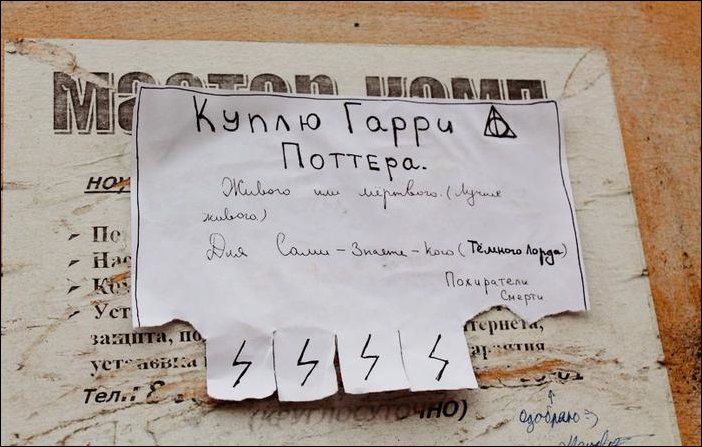 Мастер комп
Куплю Гарри
Поттера.
Живого или мёртвого. (Лучше
живого.)
Для Сами-Знаете-Кого (Тёмного Лорда)
Пожиратели
Смерти
НОУ
По
Нас
Ко
Уст
тернета,
защита, по
рантия
установка
Тел.: 8
01
(КРУГЛОСУТОЧНО)
одобряю =)